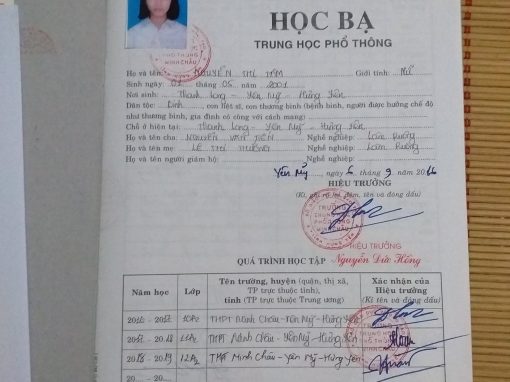 HỌC BẠ
TRUNG HỌC PHỔ THÔNG
Họ và tên: NGUYỄN THỊ TÂM Giới tính: Nữ
Sinh ngày 01 tháng 05 năm 2001
Nơi sinh: Thanh Long - Yên Mỹ - Hưng Yên
Dân tộc: Kinh, con liệt sĩ, con thương binh (bệnh binh, người được hưởng chế độ
như thương binh, gia đình có công với cách mạng)
Chỗ ở hiện tại: Thanh Long - Yên Mỹ - Hưng Yên
Họ và tên cha: NGUYỄN VĂN Nghề nghiệp: Làm Ruộng
Họ và tên mẹ: LÊ THỊ Nghề nghiệp: Làm Ruộng
Họ và tên người giám hộ:
Yên Mỹ, ngày 6 tháng 9 năm 2016
HIỆU TRƯỞNG
(Kí, ghi rõ họ, tên và đóng dấu)
TRƯỜNG
TRUNG HỌC
PHỔ THÔNG
MINH CHÂU
HIỆU TRƯỞNG
Nguyễn Đức Hồng
QUÁ TRÌNH HỌC TẬP
Năm học Lớp Tên trường, huyện (quận, thị xã, TP trực thuộc tỉnh), tỉnh (TP trực thuộc Trung ương) Xác nhận của Hiệu trưởng (Kí tên và đóng dấu)
2016 - 2017 10A2 THPT Minh Châu - Yên Mỹ - Hưng Yên
2017 - 2018 11A2 THPT Minh Châu - Yên Mỹ - Hưng Yên
2018 - 2019 12A2 THPT Minh Châu - Yên Mỹ - Hưng Yên
20... - 20...